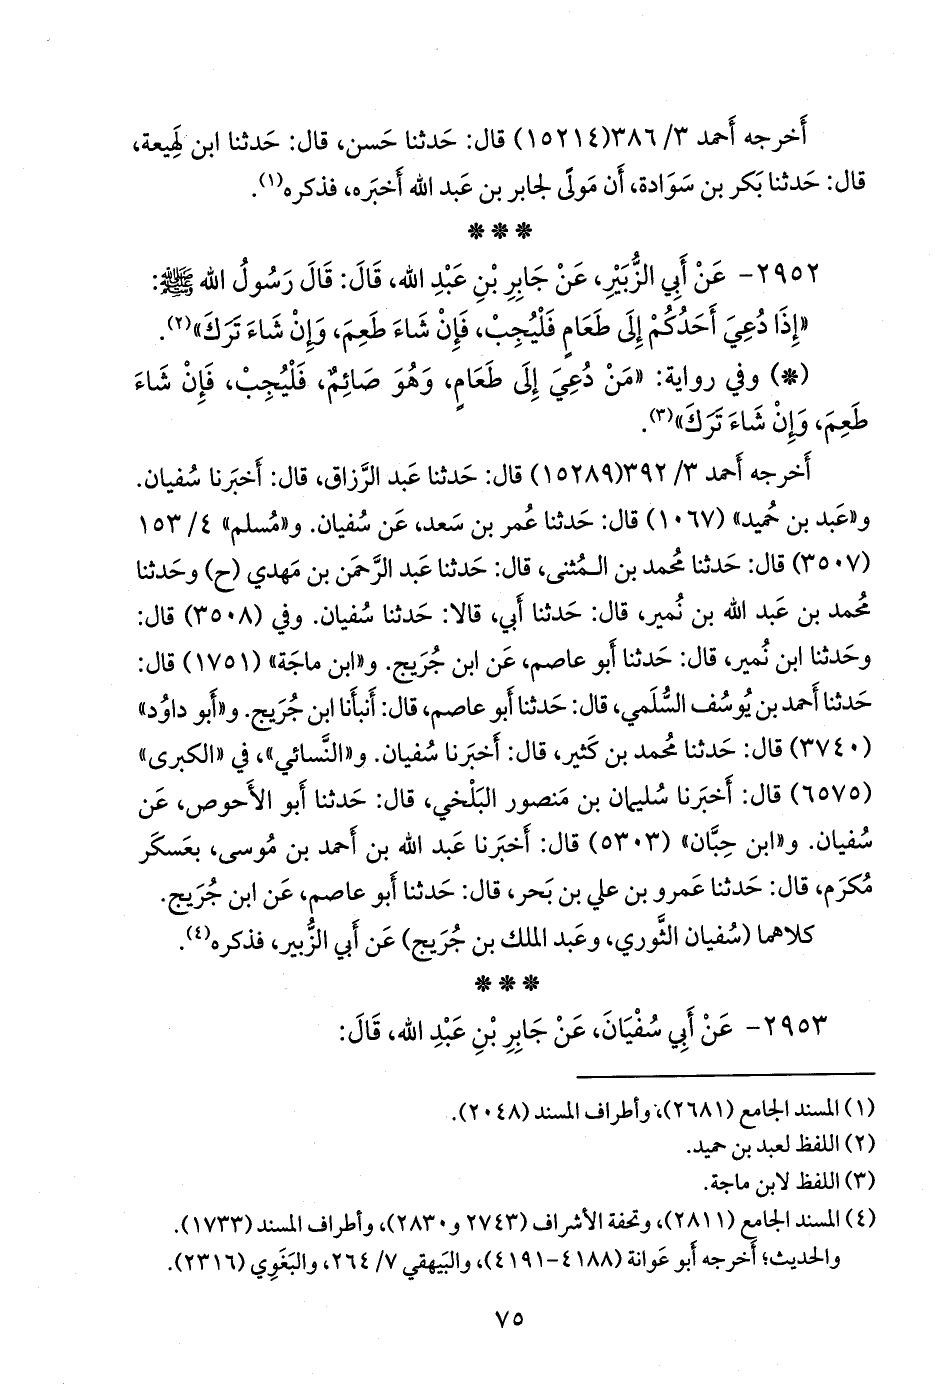 أَخرجه أَحمد ٣/ ٣٨٦(١٥٢١٤) قال: حَدثنا حَسن، قال: حَدثنا ابن لَهِيعة،
قال: حَدثنا بَكر بن سَوَادة، أَن مَولًى لجابر بن عَبد الله أَخبَره، فذكره(١).
* * *
٢٩٥٢- عَنْ أَبِي الزُّبَيْرِ، عَنْ جَابِرِ بْنِ عَبْدِ الله، قَالَ: قَالَ رَسُولُ الله ﷺ:
«إِذَا دُعِيَ أَحَدُكُمْ إِلَى طَعَامٍ فَلْيُجِبْ، فَإِنْ شَاءَ طَعِمَ، وَإِنْ شَاءَ تَرَكَ»(٢).
(*) وفي رواية: «مَنْ دُعِيَ إِلَى طَعَامٍ، وَهُوَ صَائِمٌ، فَلْيُجِبْ، فَإِنْ شَاءَ
طَعِمَ، وَإِنْ شَاءَ تَرَكَ»(٣).
أَخرجه أَحمد ٣/ ٣٩٢(١٥٢٨٩) قال: حَدثنا عَبد الرَّزاق، قال: أَخبَرنا سُفيان.
و«عَبد بن حُميد» (١٠٦٧) قال: حَدثنا عُمر بن سَعد، عَن سُفيان. و«مُسلم» ٤/ ١٥٣
(٣٥٠٧) قال: حَدثنا مُحمد بن المُثنى، قال: حَدثنا عَبد الرَّحمَن بن مَهدي (ح) وحَدثنا
مُحمد بن عَبد الله بن نُمير، قال: حَدثنا أَبي، قالا: حَدثنا سُفيان. وفي (٣٥٠٨) قال:
وحَدثنا ابن نُمير، قال: حَدثنا أَبو عاصم، عَن ابن جُرَيج. و«ابن ماجَة» (١٧٥١) قال:
حَدثنا أَحمد بن يُوسُف السُّلَمي، قال: حَدثنا أَبو عاصم، قال: أَنبأَنا ابن جُرَيج. و«أَبو داوُد»
(٣٧٤٠) قال: حَدثنا مُحمد بن كَثير، قال: أَخبَرنا سُفيان. و«النَّسائي»، في «الكبرى»
(٦٥٧٥) قال: أَخبَرنا سُليمان بن مَنصور البَلْخي، قال: حَدثنا أَبو الأَحوص، عَن
سُفيان. و«ابن حِبَّان» (٥٣٠٣) قال: أَخبَرنا عَبد الله بن أَحمد بن مُوسى، بعَسكَر
مُكرَم، قال: حَدثنا عَمرو بن علي بن بَحر، قال: حَدثنا أَبو عاصم، عَن ابن جُرَيج.
كلاهما (سُفيان الثَّوري، وعَبد الملك بن جُرَيج) عَن أَبي الزُّبير، فذكره(٤).
* * *
٢٩٥٣- عَنْ أَبِي سُفْيَانَ، عَنْ جَابِرِ بْنِ عَبْدِ الله، قَالَ:
(١) المسند الجامع (٢٦٨١)، وأطراف المسند (٢٠٤٨).
(٢) اللفظ لعبد بن حميد.
(٣) اللفظ لابن ماجة.
(٤) المسند الجامع (٢٨١١)، وتحفة الأشراف (٢٧٤٣ و٢٨٣٠)، وأطراف المسند (١٧٣٣).
والحديث؛ أَخرجه أَبو عَوانة (٤١٨٨-٤١٩١)، والبَيهقي ٧/ ٢٦٤، والبَغَوِي (٢٣١٦).
٧٥